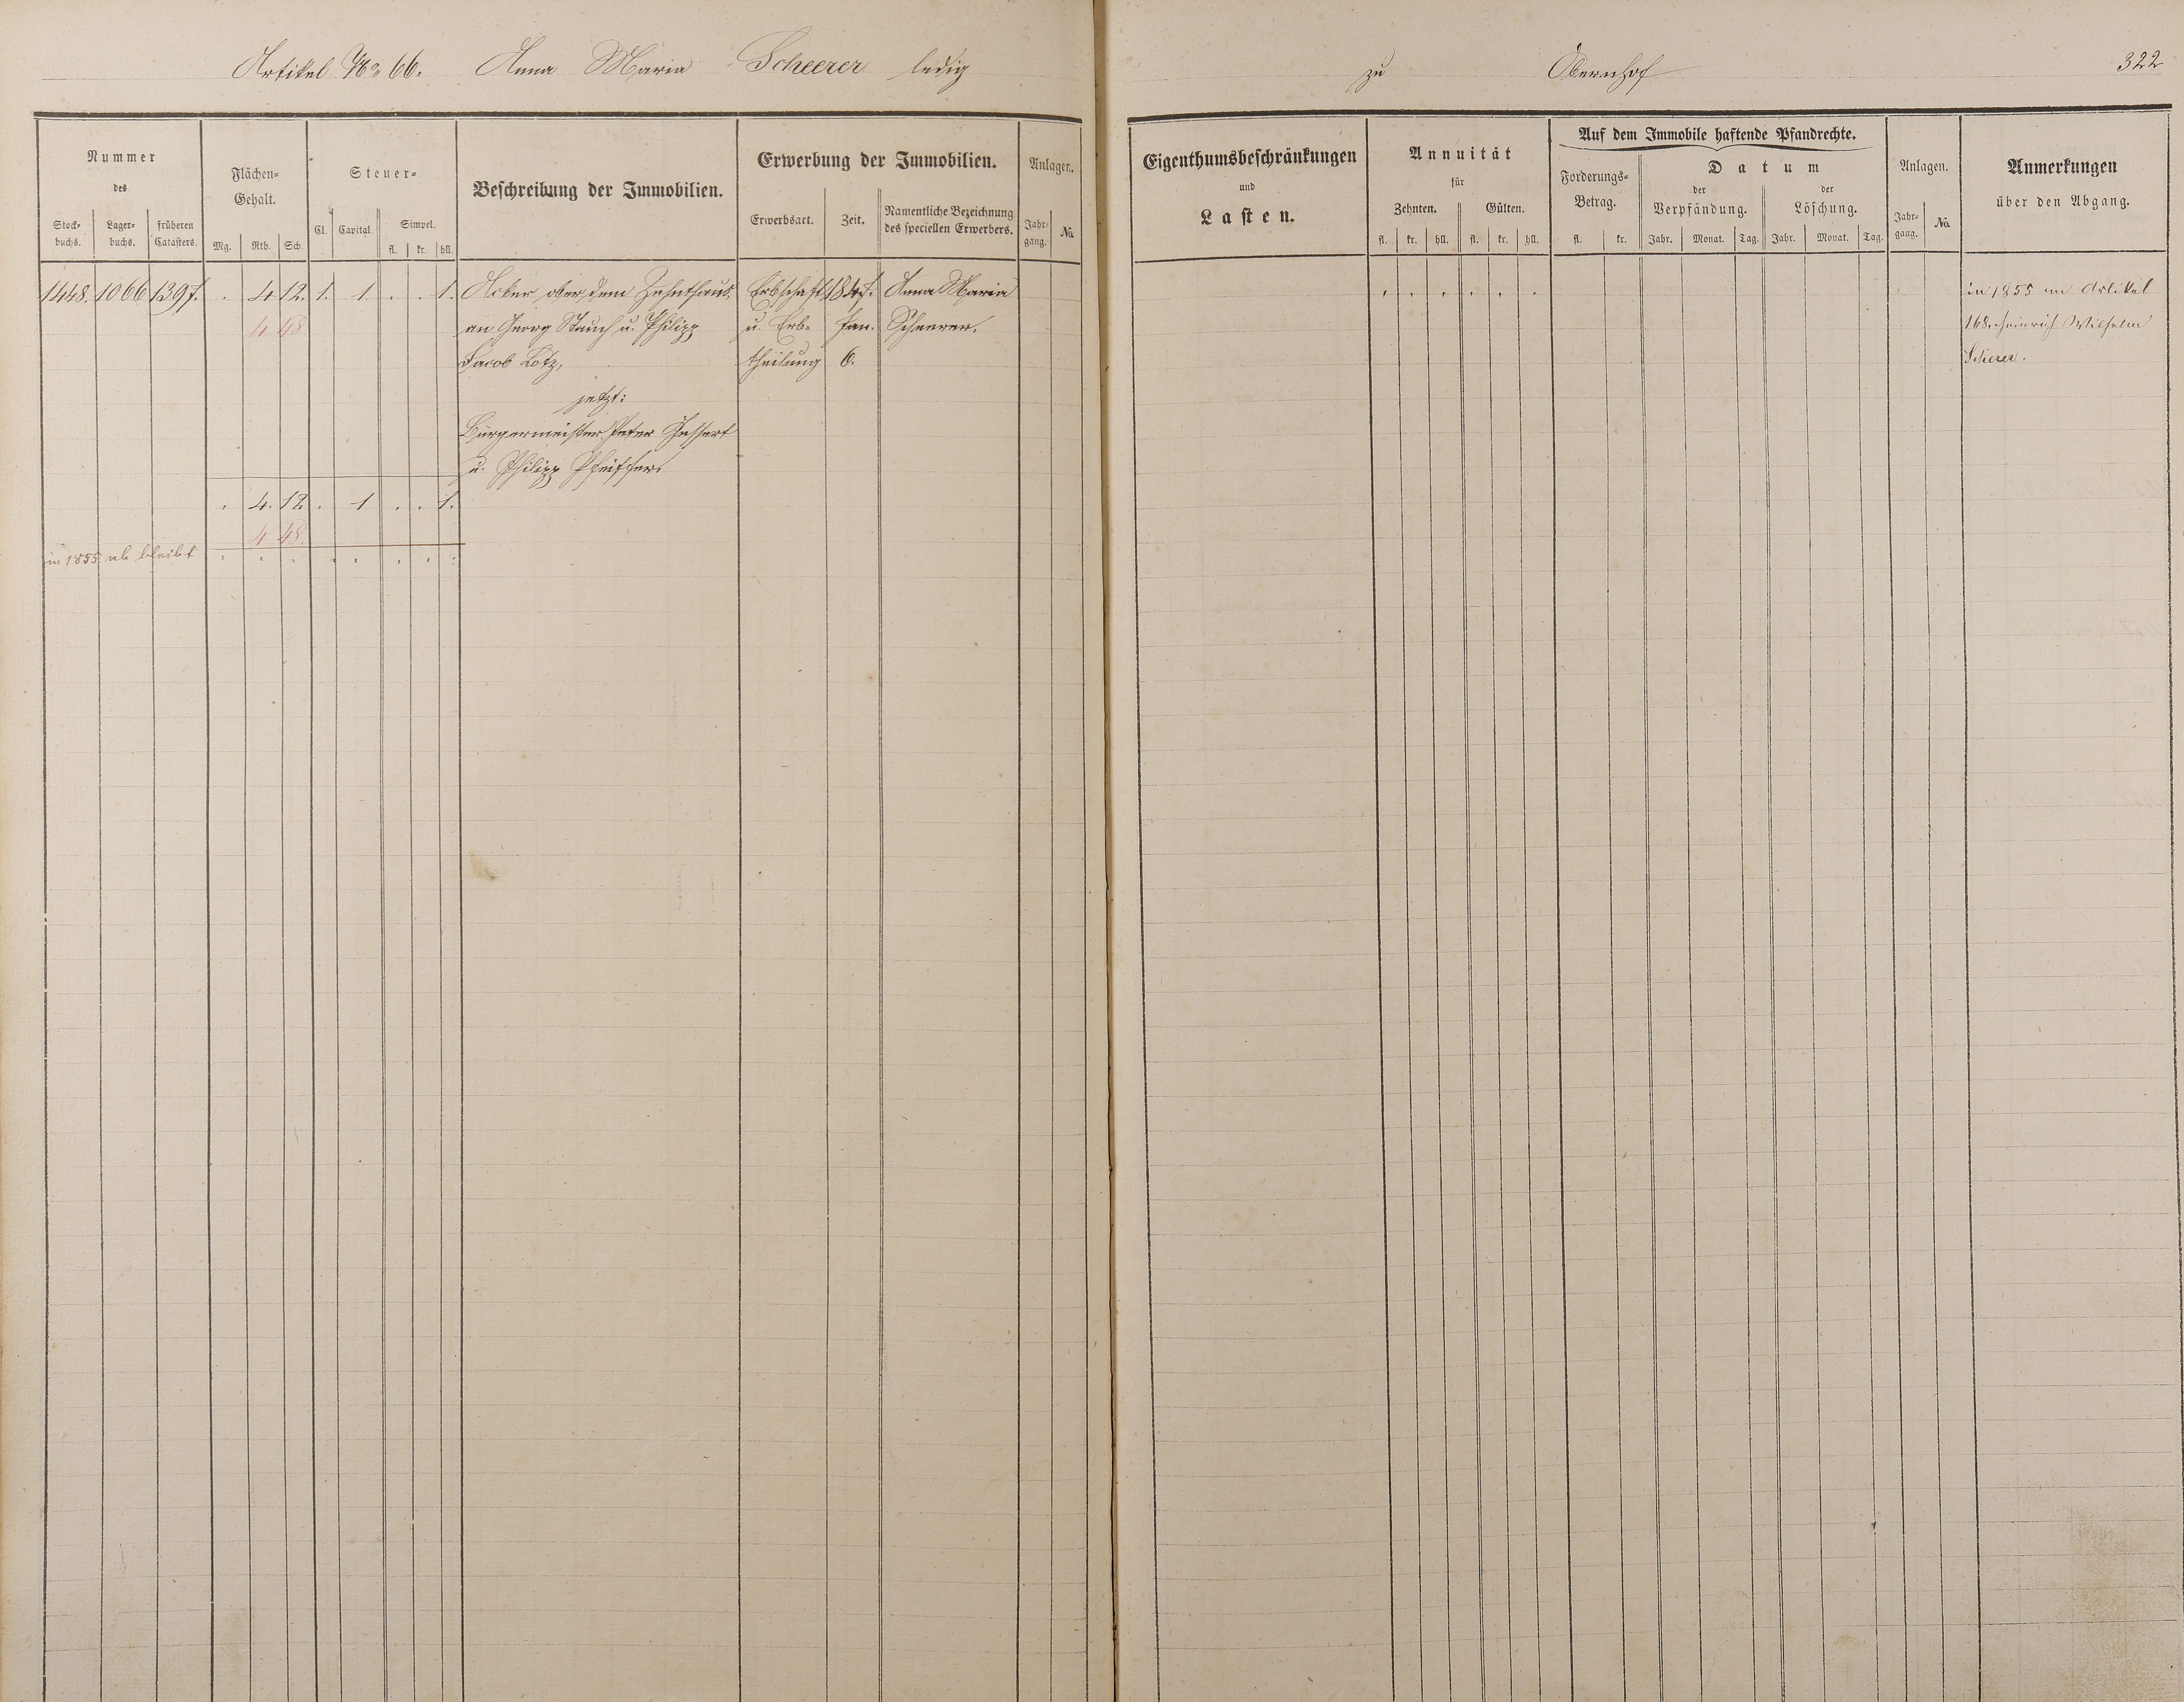 Artikel No 66. Anna Maria Scheerer ledig zu Obernhof 322
Nummer
des
Stock-
buchs.
Lager-
buchs.
früheren
Catasters.
Flächen-
Gehalt.
Mg. Rth. Sch.
Steuer-
Cl. Capital. Simpel.
fl. kr. hll.
Beschreibung der Immobilien.
Erwerbung der Immobilien.
Erwerbsart. Zeit. Namentliche Bezeichnung
des speciellen Erwerbers.
Anlagen.
Jahr-
gang.
No.
Eigenthumsbeschränkungen
und
Lasten.
Annuität
für
Zehnten. Gülten.
fl. kr. hll. fl. kr. hll.
Auf dem Immobile haftende Pfandrechte.
Forderungs-
Betrag.
fl. kr.
Datum
der
Verpfändung.
der
Löschung.
Jahr. Monat. Tag. Jahr. Monat. Tag.
Anlagen.
Jahr-
gang.
No.
Anmerkungen
über den Abgang.
1448. 1066 1397. . 4 12. 1. 1. . . 1. Acker ober dem Zehnthaus. Erbschaft 1847. Anna Maria
4 48 an Georg Stauch u. Philipp u. Erb- Jan. Scheerer.
Jacob Lotz, theilung 6.
jetzt:
Bürgermeister Peter
u. Philipp Pfeiffer.
. 4. 12 . 1 . . 1.
4 48.
in 1855 ab bleibt . . . . . . . .
. . . . . .
in 1855 an Artikel
168. Heinrich Wilhelm
Scherer.